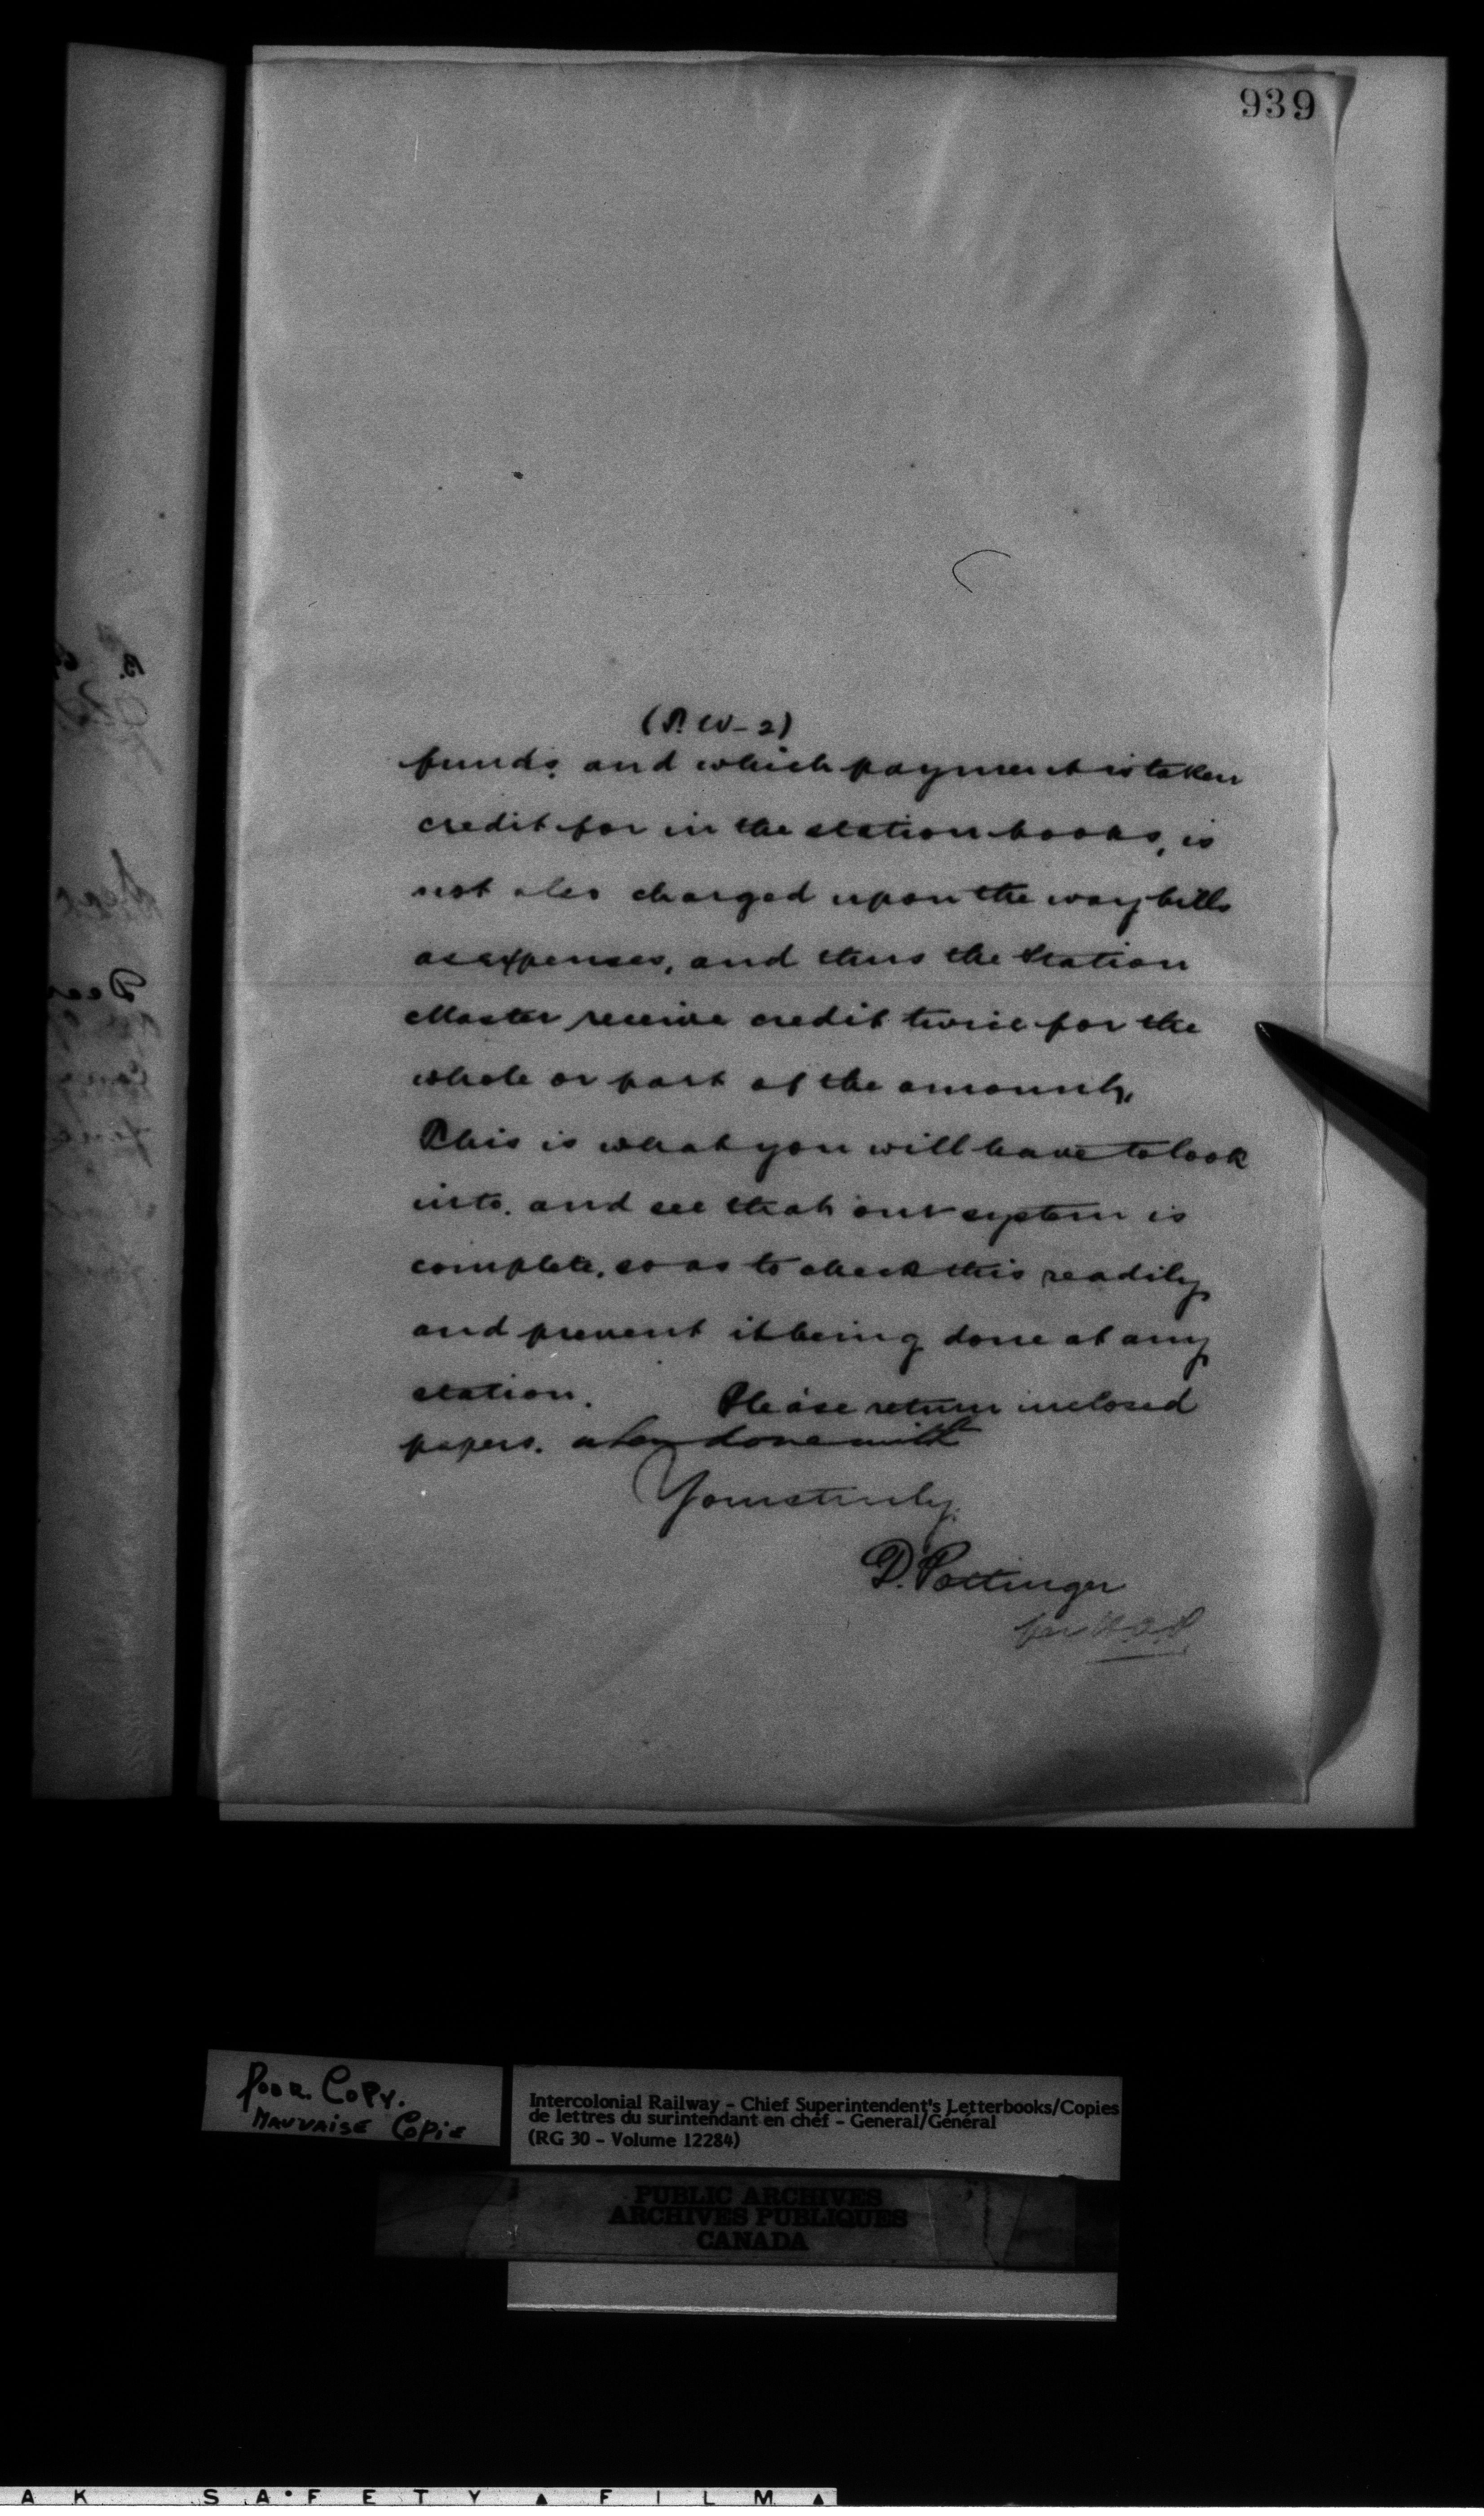 939
(T.W-2)
funds, and which payment is taken
credit for in the station books, is
not also charged upon the way bills
as expenses, and thus the Station
Master receive credit twice for the
whole or part of the amounts.
This is what you will have to look
into. and see that our system is
complete, so as to check this readily
and prevent it being done at any
station. Please return inclosed
papers. when done with
Yours truly
D. Pottinger
Poor Copy.
Mauvaise Copie
Intercolonial Railway - Chief Superintendent's Letterbooks/Copies
de lettres du surintendant en chef - General/Général
(RG 30 - Volume 12284)
PUBLIC ARCHIVES
ARCHIVES PUBLIQUES
CANADA
AK SAFETY FILM